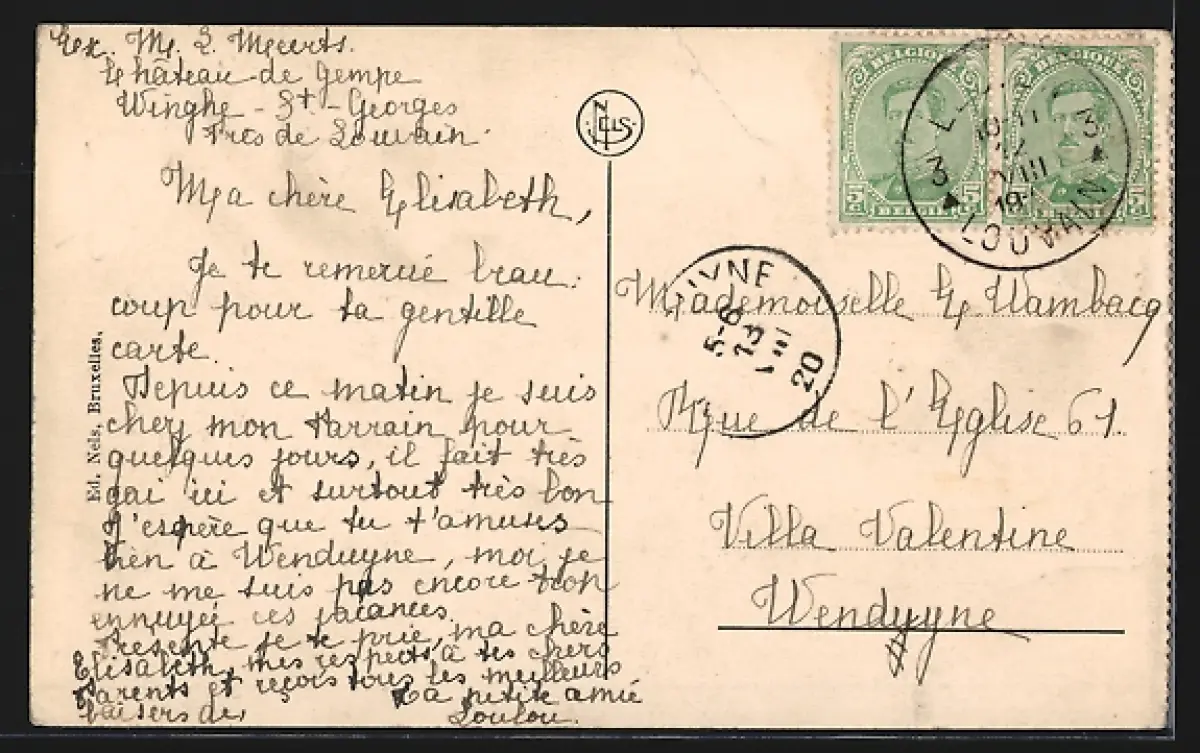 Ex. Me. L. Meerts.
Château de Gempe
Winghe - St - Georges
Près de Louvain.
Ma chère Elisabeth,
Je te remercie beau-
coup pour ta gentille
carte.
Depuis ce matin je suis
chez mon Parrain pour
quelques jours, il fait très
gai ici et surtout très bon
J'espère que tu t'amuses
bien à Wenduyne, moi je
ne me suis pas encore tron
ennuyée ces vacances.
Présente je te prie, ma chère
Elisabeth, mes respects à tes chers
Parents et reçois tous les meilleurs
baisers de
Ta petite amie
Loulou.
Ed. Nels, Bruxelles.
NELS
BELGIQUE
5c. 5c.
BELGIE
BELGIQUE
5c. 5c.
BELGIE
3 3
VIII
19
LOUVAIN
UYNE
5-6
13
VIII
20
Mademoiselle E. Wambacq
Rue de l'Eglise 61.
Villa Valentine
Wenduyne